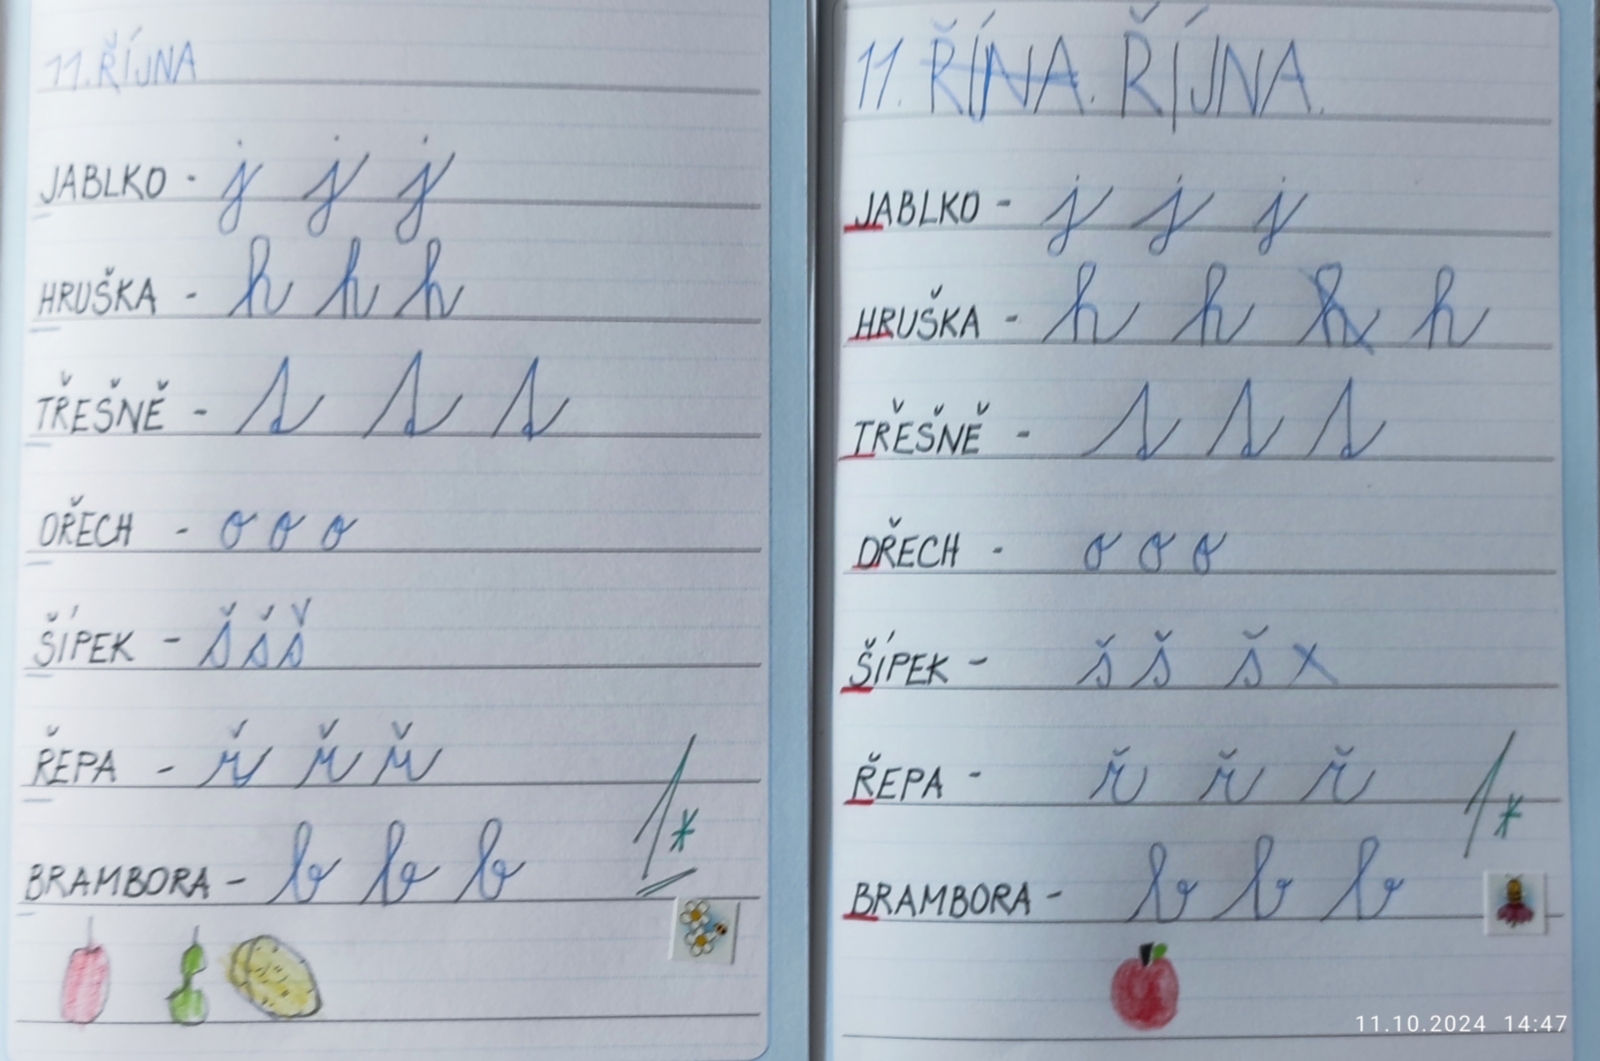 11. ŘÍJNA
JABLKO - j j j
HRUŠKA - h h h
TŘEŠNĚ - t t t
OŘECH - o o o
ŠÍPEK - š š š
ŘEPA - ř ř ř
BRAMBORA - b b b
11. ŘÍNA. ŘÍJNA.
JABLKO - j j j
HRUŠKA - h h h h
TŘEŠNĚ - t t t
OŘECH - o o o
ŠÍPEK - š š š x
ŘEPA - ř ř ř
BRAMBORA - b b b
11.10.2024 14:47